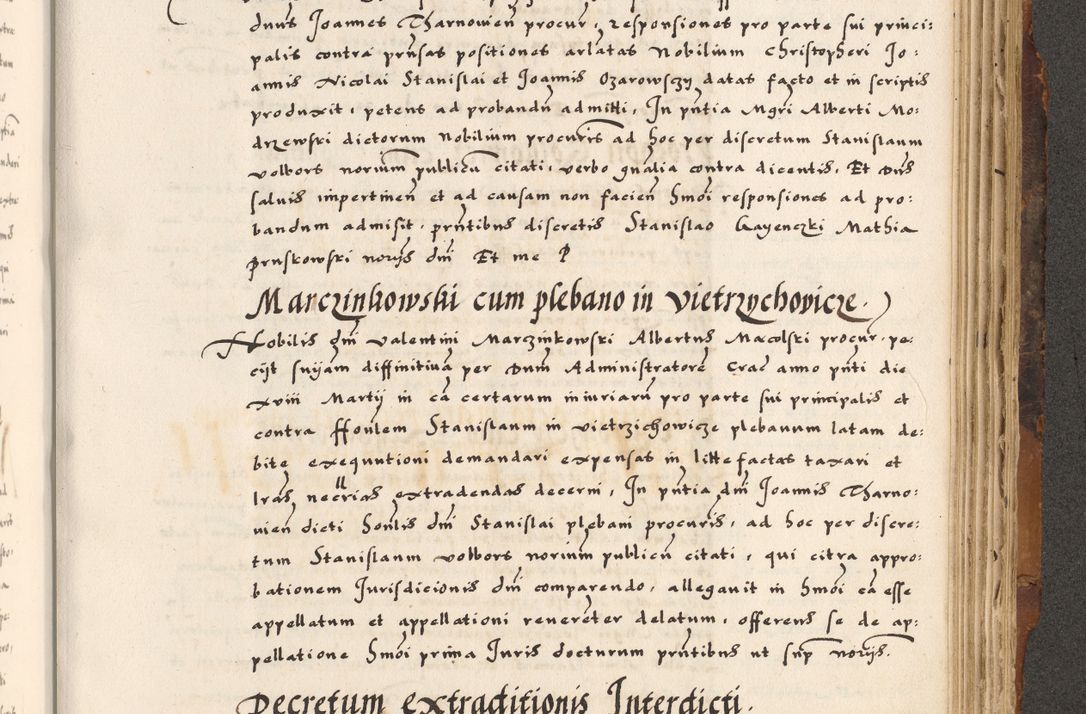 dnus Joannes Tharnowień procur, responsiones pro parte sui princi:
palis contra prńsas positiones arlatas Nobilium Christopheri Jo:
annis Nicolai Stanislai et Joannis Ozarowszy datas facto et in scriptis
produxit, petens ad probandū admitti, In pñtia Mgri Alberti Mo:
drzewski dictorum Nobilium procuris ad hoc per discretum Stanislaum
volbors norium publicū citati, verbo gnalia contra dicentis, Et Dns
salvis impertineñ et ad causam non facieñ hmōi responsiones ad pro:
bandum admisit, prñtibus discretis Stanislao Gayenczki Mathia
Pruskowski norijs dñi Et me P
Marczinkowski cum plebano in Vietrzychovicze.
Nobilis dñi Valentini Marczinkowski Albertus Macolski procur, pe:
cijt suijam diffinitivā per Dnum Administratorē Crac̄ anno pñti die
xviii Martij in cā certarum iniuriarū pro parte sui principalis et
contra ffonlem Stanislaum in Vietrzichowicze plebanum latam de:
bite exequutioni demandari expensas in litte factas taxari et
lras necrias extradendas decerni, In pñtia dñi Joannis Tharno:
vień dicti honlis dñi Stanislai plebani procuris, ad hoc per discre:
tum Stanislaum volbors norium publicū citati, qui citra appro:
bationem Jurisdicionis dñi comparendo, allegavit in hmōi cā esse
appellatum et appellationi reverēter delatum, offerens se de ap:
pellatione hmōi prima Juris docturum prñtibus ut sup norijs.
Decretum extraditionis Interdicti.